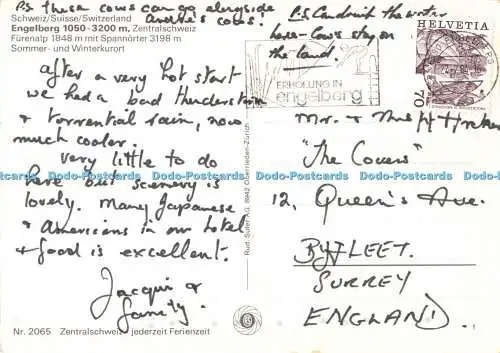 P.S these cows can go alongside
cows!
Schweiz/Suisse/Switzerland
Engelberg 1050-3200 m, Zentralschweiz
Fürenalp 1848 m mit Spannörter 3198 m
Sommer- und Winterkurort
After a very hot start
we had a bad thunderstorm
& torrential rain, now
much cooler.
Very little to do
here but scenery is
lovely. Many Japanese
& Americans in our hotel
& food is excellent.
Jacqui &
family.
Nr. 2065 Zentralschweiz - jederzeit Ferienzeit
Rud. Suter AG, 8942 Oberrieden-Zürich
P.S. the water
here - cows stay on
the land.
ERHOLUNG IN
engelberg
HELVETIA
70
Mr. & Mrs H
"The Covers"
12, Queen's Ave.
BYFLEET.
SURREY
ENGLAND.
Postcards
Postcard Finder